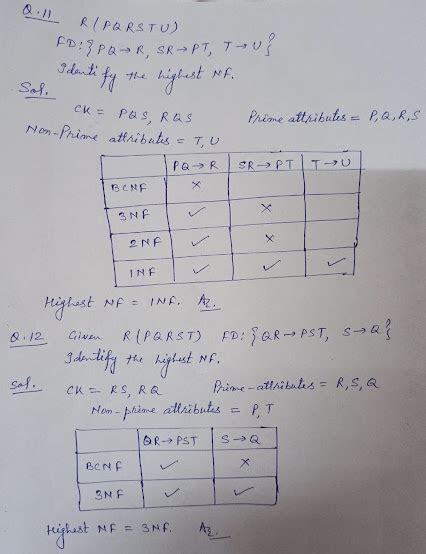 Q.11 R(PQRSTU)
FD:{PQ→R, SR→PT, T→U}
Identify the highest NF.
Sol.
CK = PQS, RQS Prime attributes = P,Q,R,S
Non-Prime attributes = T,U
PQ→R SR→PT T→U
BCNF ×
3NF ✓ ×
2NF ✓ ×
1NF ✓ ✓ ✓
Highest NF = 1NF.
Q.12 Given R(PQRST) FD:{QR→PST, S→Q}
Identify the highest NF.
Sol. CK = RS, RQ Prime-attributes = R,S,Q
Non-prime attributes = P,T
QR→PST S→Q
BCNF ✓ ×
3NF ✓ ✓
Highest NF = 3NF.